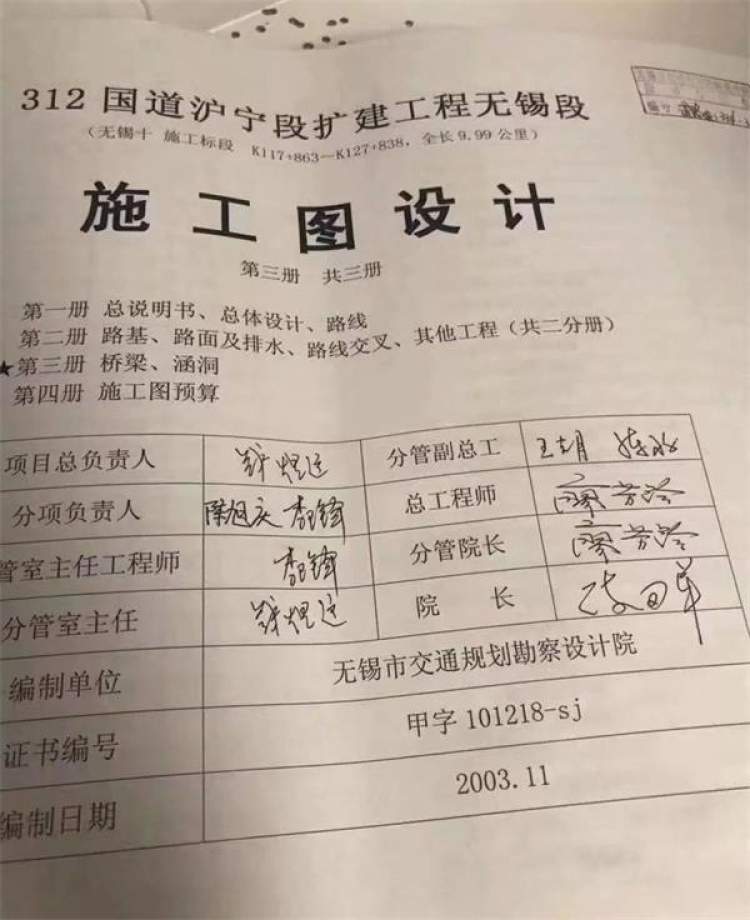 312国道沪宁段扩建工程无锡段
（无锡十 施工标段 K117+863—K127+838，全长9.99公里）
施工图设计
第三册 共三册
第一册 总说明书、总体设计、路线
第二册 路基、路面及排水、路线交叉、其他工程（共二分册）
★第三册 桥梁、涵洞
第四册 施工图预算
项目总负责人 分管副总工
分项负责人 陈旭庆 李锋 总工程师
管室主任工程师 李锋 分管院长
分管室主任 院 长
编制单位 无锡市交通规划勘察设计院
证书编号 甲字 101218-sj
编制日期 2003.11